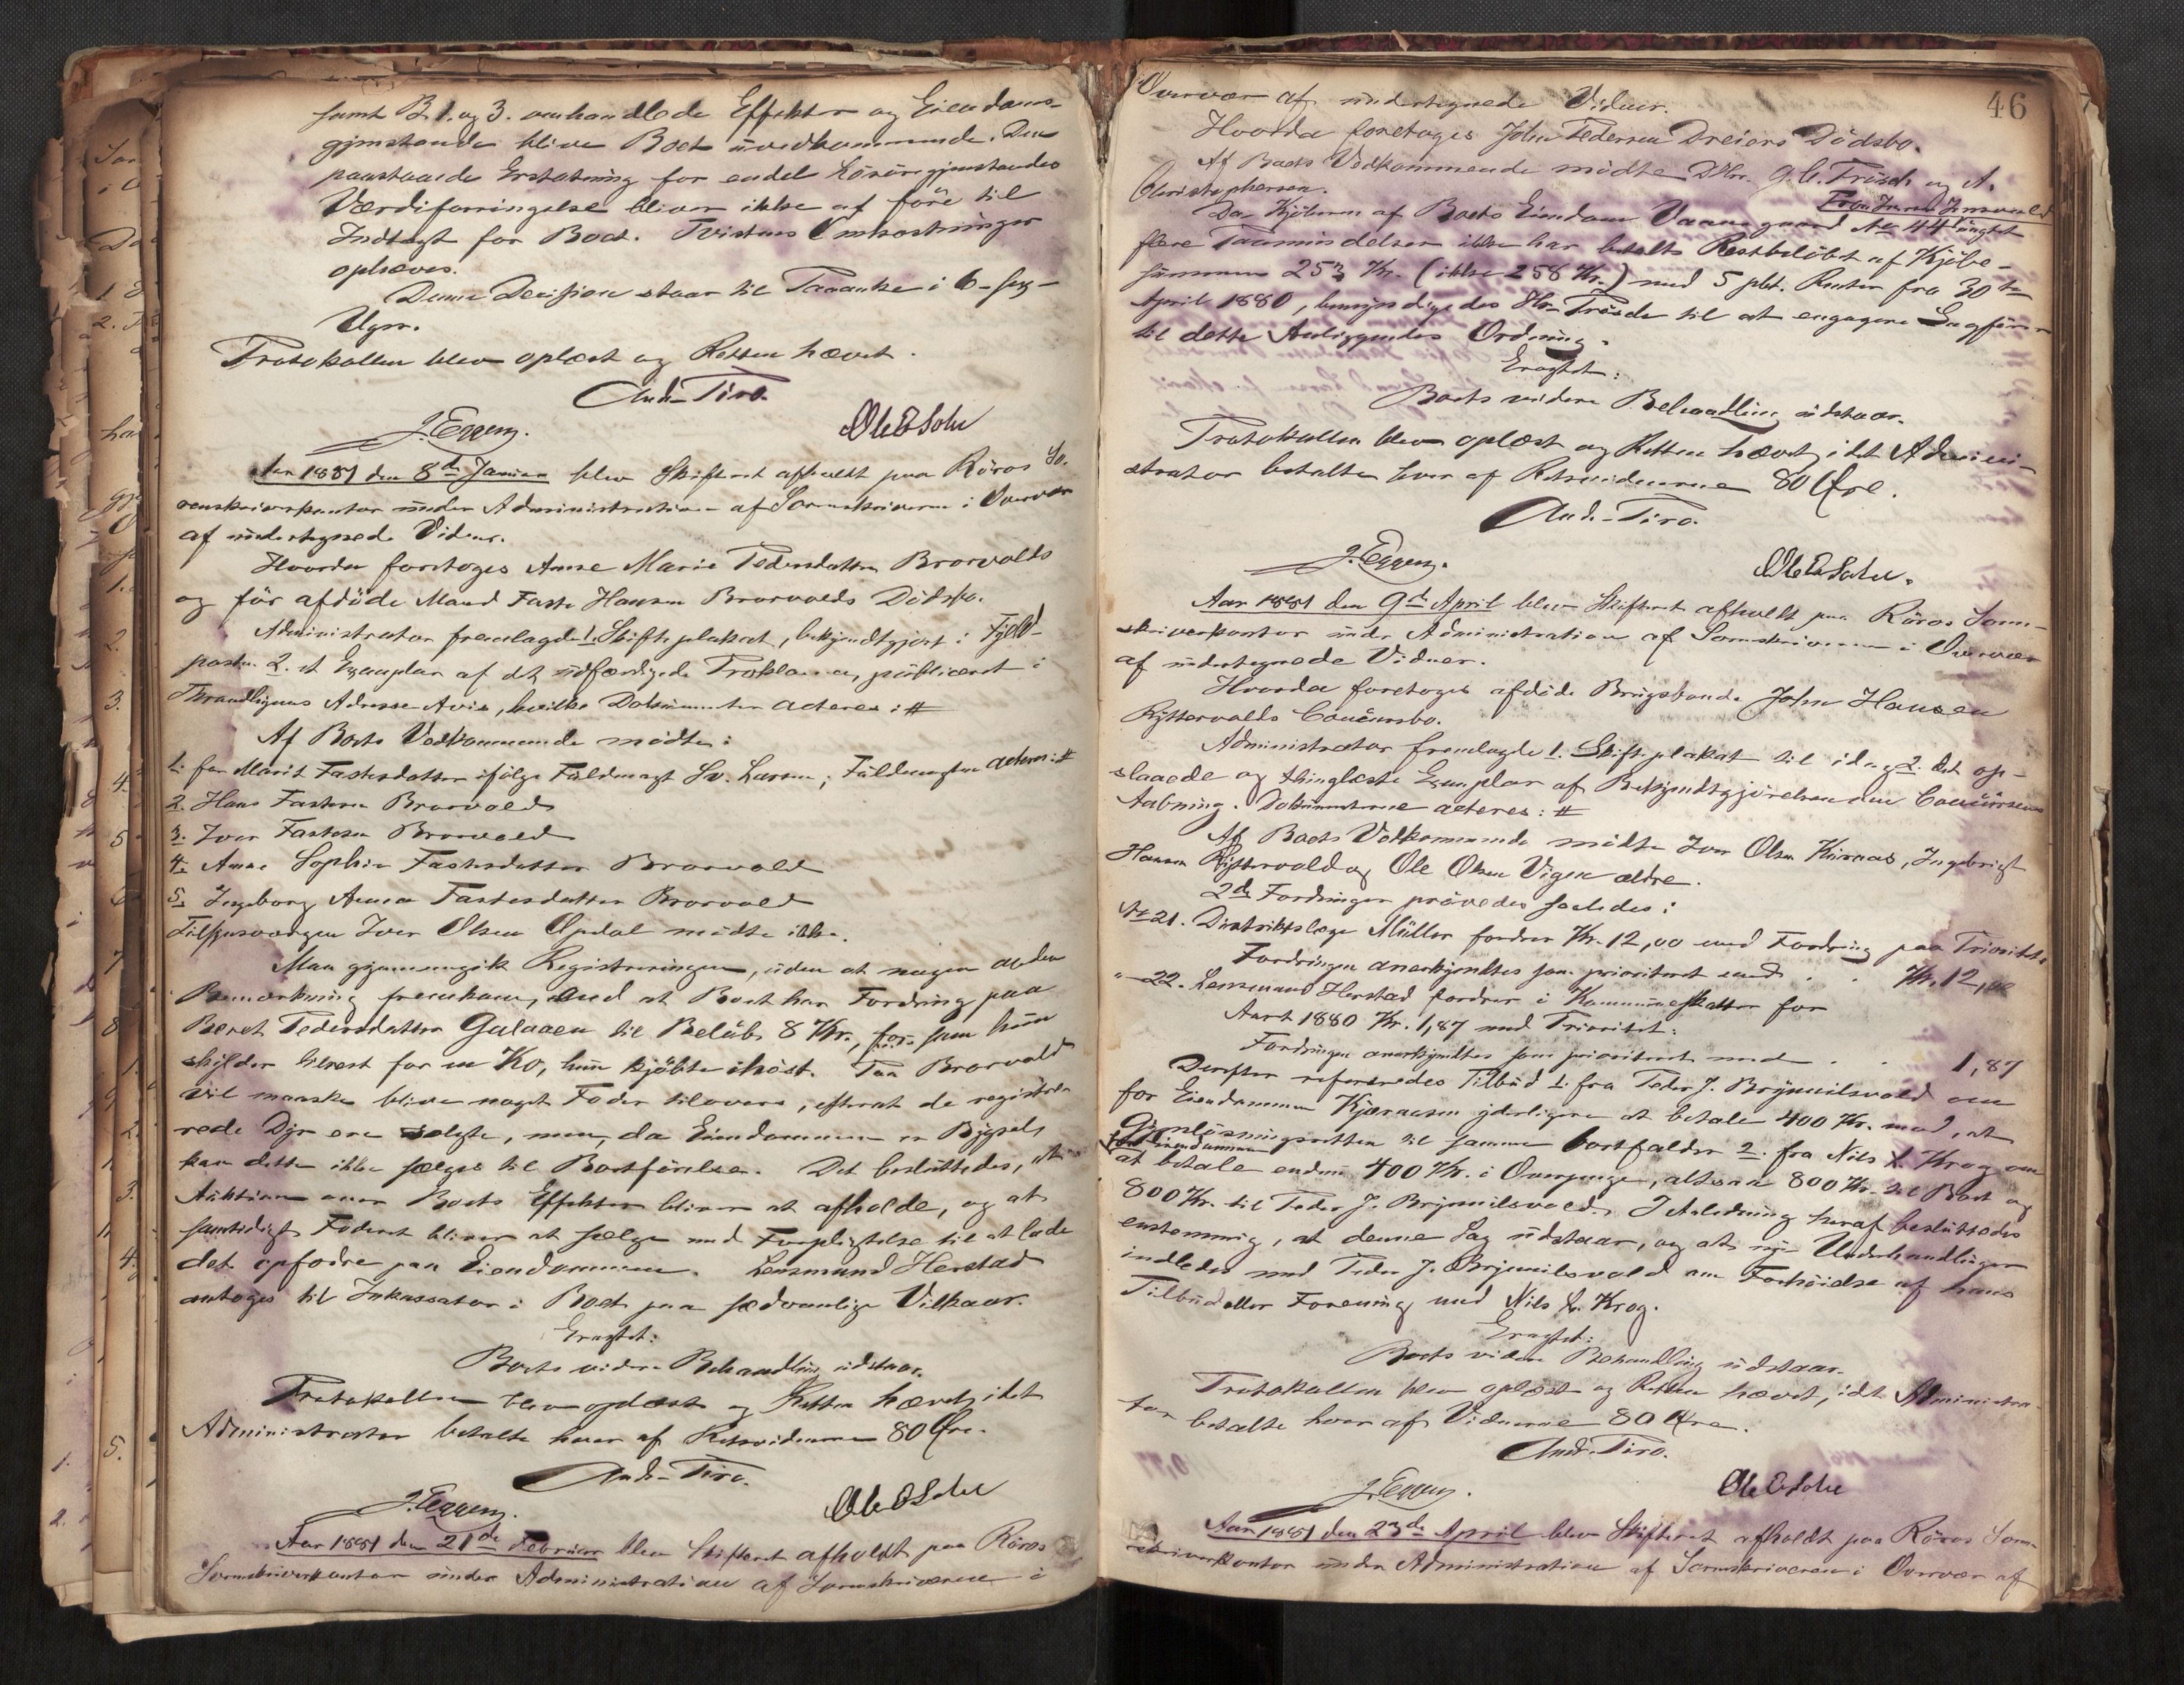 samt B. 1. og 3. omhandlede Effekter og Eiendoms-
gjenstande blive Boet uvedkommende. Den
paastaaede Erstatning for endel Løsøregjenstandes
Værdiforringelse bliver ikke at føre til
Indtægt for Boet. Tvistens Omkostninger
ophæves.
Denne Decision staar til Paaanke i 6 - sex -
Uger.
Protokollen blev oplæst og Retten hævet.
And. Piro.
J. Eggen. Ole E Solie
Aar 1881 den 8de Januar blev Skifteret afholdt paa Röros So-
renskriverkontor under Administration af Sorenskriveren i Overvær
af undertegnede Vidner.
Hvorda foretoges Anne Marie Pedersdatter Brorvolds
og før afdöde Mand Faste Hansen Brorvolds Dödsbo.
Administrator fremlagde 1. Skifteplakat, bekjendtgjort i Fjeld-
posten 2. et Exemplar af det udfærdigede Proklama, publiceret i
Throndhjems Adresse-Avis, hvilke Dokumenter acteres: #
Af Boets Vedkommende mødte:
1. for Marit Fastesdatter ifølge Fuldmagt Sv. Larsen; Fuldmagten acteres: #
2. Hans Fastesen Brorvold
3. Iver Fastesen Brorvold
4. Anne Sophie Fastesdatter Brorvold
5. Ingeborg Anna Fastesdatter Brorvold
Tilsynsværgen Iver Olsen Opdal mødte ikke.
Man gjennemgik Registreringen, uden at nogen anden
Bemærkning fremkom, end at Boet har Fordring paa
Beret Pedersdatter Galaaen til Beløb 8 Kr., for som hun
skylder tilrest for en Ko, hun kjøbte ihøst. Paa Brorvold
vil maaske blive noget Foder tilovers, efterat de registre-
rede Dyr ere solgte, men, da Eiendommen er Bygsel,
kan dette ikke sælges til Bortførelse. Det besluttedes, at
Auktion over Boets Effekter bliver at afholde, og at
samtidigt Foderet bliver at sælge med Forpligtelse til at lade
det opfodre paa Eiendommen. Lensmand Herstad
antoges til Inkassator i Boet paa sædvanlige Vilkaar.
Eragtet:
Boets videre Behandling udstaar.
Protokollen blev oplæst og Retten hævet, idet
Administrator betalte hver af Retsvidnerne 80 Øre.
And. Piro.
J. Eggen. Ole E Solie
Aar 1881 den 21de Februar blev Skifteret afholdt paa Röros
Sorenskriverkontor under Administration af Sorenskriveren i
46
Overvær af undertegnede Vidner.
Hvorda foretoges John Pedersen Dreiers Dödsbo.
Af Boets Vedkommende mødte DHrr. G. C. Frösch og A.
Christophersen.
Da Kjøberen af Boets Eiendom Vaaningsgaard No 44 uagtet
flere Paamindelser ikke har betalt Restbeløbet af Kjøbe-
summen 253 Kr. (ikke 258 Kr.) med 5 pCt. Renter fra 30te
April 1880, bemyndigedes Hr. Frösch til at engagere Sagfører
til dette Anliggendes Ordning.
Eragtet:
Boets videre Behandling udstaar.
Protokollen blev oplæst og Retten hævet, idet Admini-
strator betalte hver af Retsvidnerne 80 Øre.
And. Piro.
J. Eggen. Ole E Solie.
Aar 1881 den 9de April blev Skifteret afholdt paa Röros Soren-
skriverkontor under Administration af Sorenskriveren i Overvær
af undertegnede Vidner.
Hvorda foretoges afdøde Brugsbonde John Hansen
Ryttervolds Concursbo.
Administrator fremlagde 1. Skifteplakat til idag 2. det op-
slaaede og thinglæste Exemplar af Bekjendtgjørelsen om Concursens
Aabning. Dokumenterne acteres: #
Af Boets Vedkommende mødte Iver Olsen Kuraas, Ingebrigt
Hansen Ryttervold og Ole Olsen Vigen ældre.
2de Fordringer prøvedes saaledes:
No 21. Distriktslæge Müller fordrer Kr. 12,00 med Fordring paa Prioritet.
Fordringen anerkjendtes som prioriteret med . . Kr. 12,00
" 22. Lensmand Herstad fordrer i Kommuneskatter for
Aaret 1880 Kr. 1,87 med Prioritet:
Fordringen anerkjendtes som prioriteret med . . 1,87
Derefter refereredes Tilbud 1. fra Peder J. Brynnilsvold om
for Eiendommen Kjæraasen yderligere at betale 400 Kr. mod, at
Gjenløsningsretten til samme bortfalder 2. fra Nils Krog om
for Eiendommen
at betale endnu 400 Kr. i Overpenge, altsaa 800 Kr. til Boet og
800 Kr. til Peder J. Brynnilsvold. I Anledning heraf besluttedes
enstemmig, at denne Sag udstaar, og at nye Underhandlinger
indledes med Peder J. Brynnilsvold om Forhøielse af hans
Tilbud eller Forening med Nils Krog.
Eragtet:
Boets videre Behandling udstaar.
Protokollen blev oplæst og Retten hævet, idet Administra-
tor betalte hver af Vidnerne 80 Øre.
And. Piro.
J. Eggen. Ole E Solie
Aar 1881 den 23de April blev Skifteret afholdt paa Röros Soren-
skriverkontor under Administration af Sorenskriveren i Overvær af